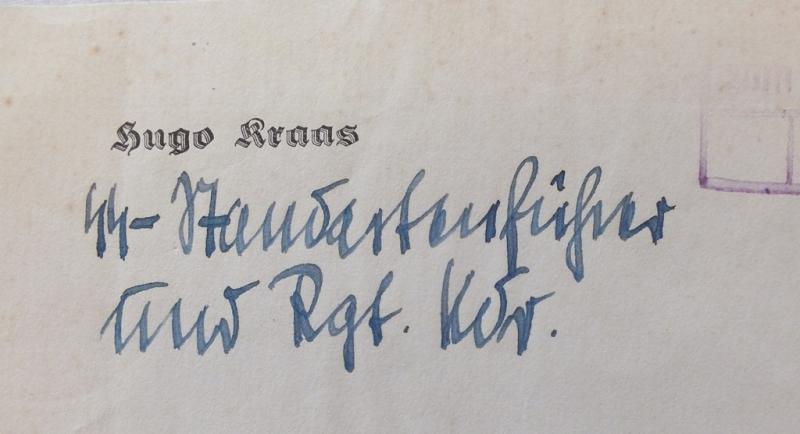 Hugo Kraas
SS-Standartenführer
und Rgt. Kdr.